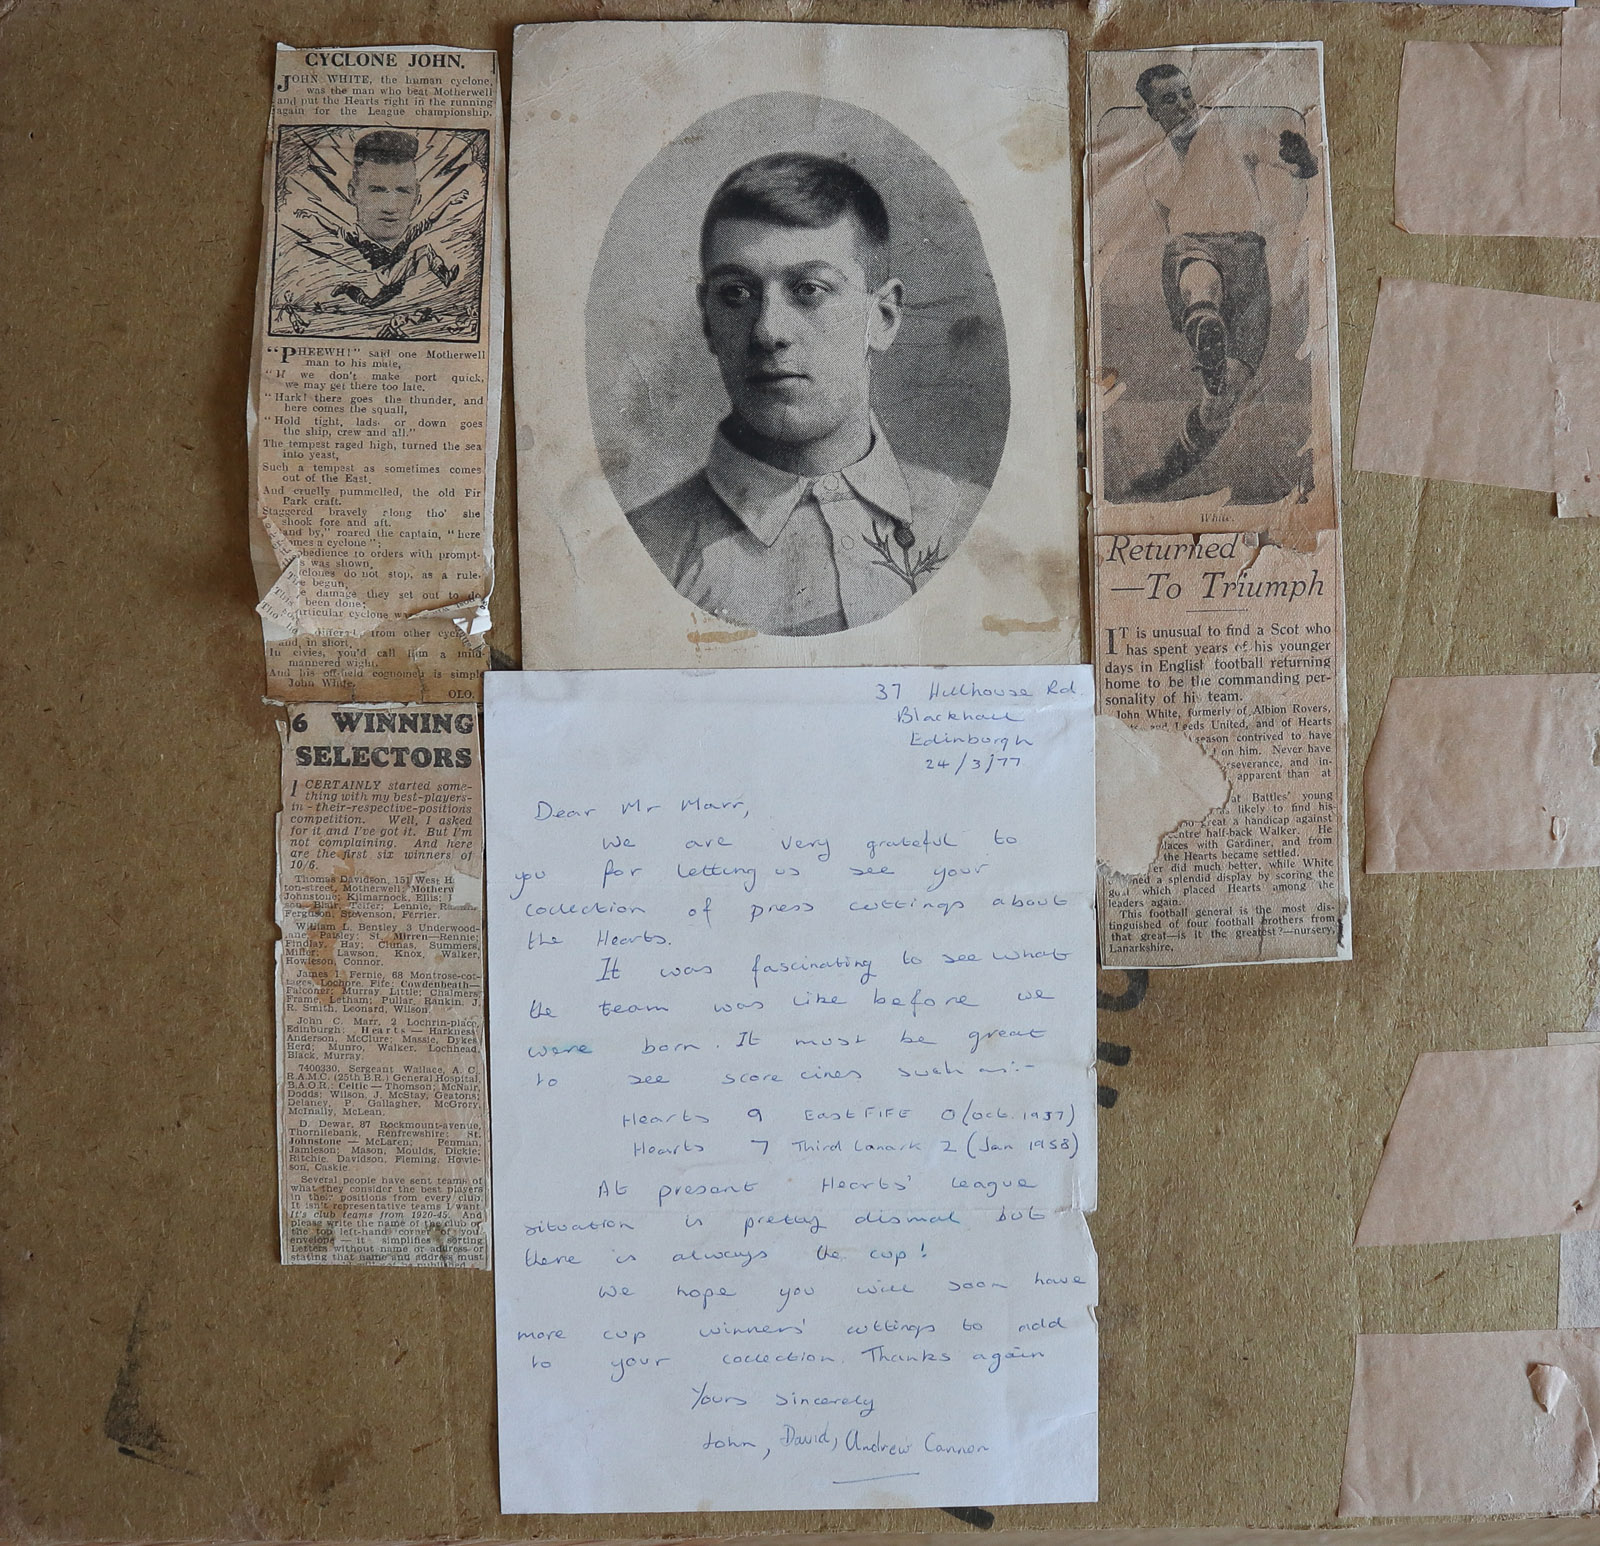 CYCLONE JOHN.
JOHN WHITE, the human cyclone,
was the man who beat Motherwell
and put the Hearts right in the running
again for the League championship.
"PHEEWH!" said one Motherwell
man to his mate,
"If we don't make port quick,
we may get there too late.
"Hark! there goes the thunder, and
here comes the squall,
"Hold tight, lads, or down goes
the ship, crew and all."
The tempest raged high, turned the sea
into yeast,
Such a tempest as sometimes comes
out of the East.
And cruelly pummelled, the old Fir
Park craft.
Staggered bravely along tho' she
shook fore and aft.
and by," roared the captain, "here
omes a cyclone";
obedience to orders with prompt-
s was shown,
yclones do not stop, as a rule,
e begun,
e damage they set out to do
been done;
articular cyclone wa
from other
and, in short,
In civies, you'd call him a mild-
mannered wight.
And his off-field cognomen is simple
John White.
OLO.
6 WINNING
SELECTORS
I CERTAINLY started some-
thing with my best-players-
in-their-respective-positions
competition. Well, I asked
for it and I've got it. But I'm
not complaining. And here
are the first six winners of
10/6.
Thomas Davidson, 151 West H
ton-street, Motherwell; Mothery
Johnstone; Kilmarnock, Ellis;
Blair, Telfer; Lennie,
Ferguson, Stevenson, Ferrier.
William L. Bentley, 3 Underwood-
lane, Paisley; St. Mirren—Rennie;
Findlay, Hay; Clunas, Summers,
Miller; Lawson, Knox, Walker,
Howieson, Connor.
James I. Fernie, 68 Montrose-cot-
tages, Lochore, Fife; Cowdenbeath—
Falconer; Murray, Little; Chalmers,
Frame, Letham; Pullar, Rankin, J.
R. Smith, Leonard, Wilson.
John C. Marr, 2 Lochrin-place,
Edinburgh; Hearts — Harkness
Anderson, McClure; Massie, Dykes
Herd; Munro, Walker, Lochhead,
Black, Murray.
7400330, Sergeant Wallace, A. C.
R.A.M.C. (25th B.R.) General Hospital,
B.A.O.R.; Celtic — Thomson; McNair,
Dodds; Wilson, J. McStay, Geatons;
Delaney, P. Gallagher, McGrory,
McInally, McLean.
D. Dewar, 87 Rockmount-avenue,
Thornliebank, Renfrewshire; St.
Johnstone — McLaren; Penman,
Jamieson; Mason, Moulds, Dickie;
Ritchie, Davidson, Fleming, Howie-
son, Caskie.
Several people have sent teams of
what they consider the best players
in their positions from every club.
It isn't representative teams I want.
It's club teams from 1920-45. And
please write the name of the club on
the top left-hand corner of your
envelope — it simplifies sorting.
Letters without name or address or
stating that name and address must
37 Hillhouse Rd.
Blackhall
Edinburgh
24/3/77
Dear Mr Marr,
We are very grateful to
you for letting us see your
collection of press cuttings about
the Hearts.
It was fascinating to see what
the team was like before we
were born. It must be great
to see score lines such as:-
Hearts 9 EAST FIFE 0 (Oct. 1937)
Hearts 7 Third Lanark 2 (Jan 1958)
At present Hearts' league
situation is pretty dismal but
there is always the cup!
We hope you will soon have
more cup winners' cuttings to add
to your collection. Thanks again
Yours sincerely
John, David, Andrew Cannon
White.
Returned
—To Triumph
IT is unusual to find a Scot who
has spent years of his younger
days in English football returning
home to be the commanding per-
sonality of his team.
John White, formerly of Albion Rovers,
and Leeds United, and of Hearts
season contrived to have
on him. Never have
rseverance, and in-
apparent than at
at Battles' young
likely to find his
great a handicap against
entre half-back Walker. He
laces with Gardiner, and from
the Hearts became settled.
er did much better, while White
ned a splendid display by scoring the
goal which placed Hearts among the
leaders again.
This football general is the most dis-
tinguished of four football brothers from
that great—is it the greatest?—nursery,
Lanarkshire.